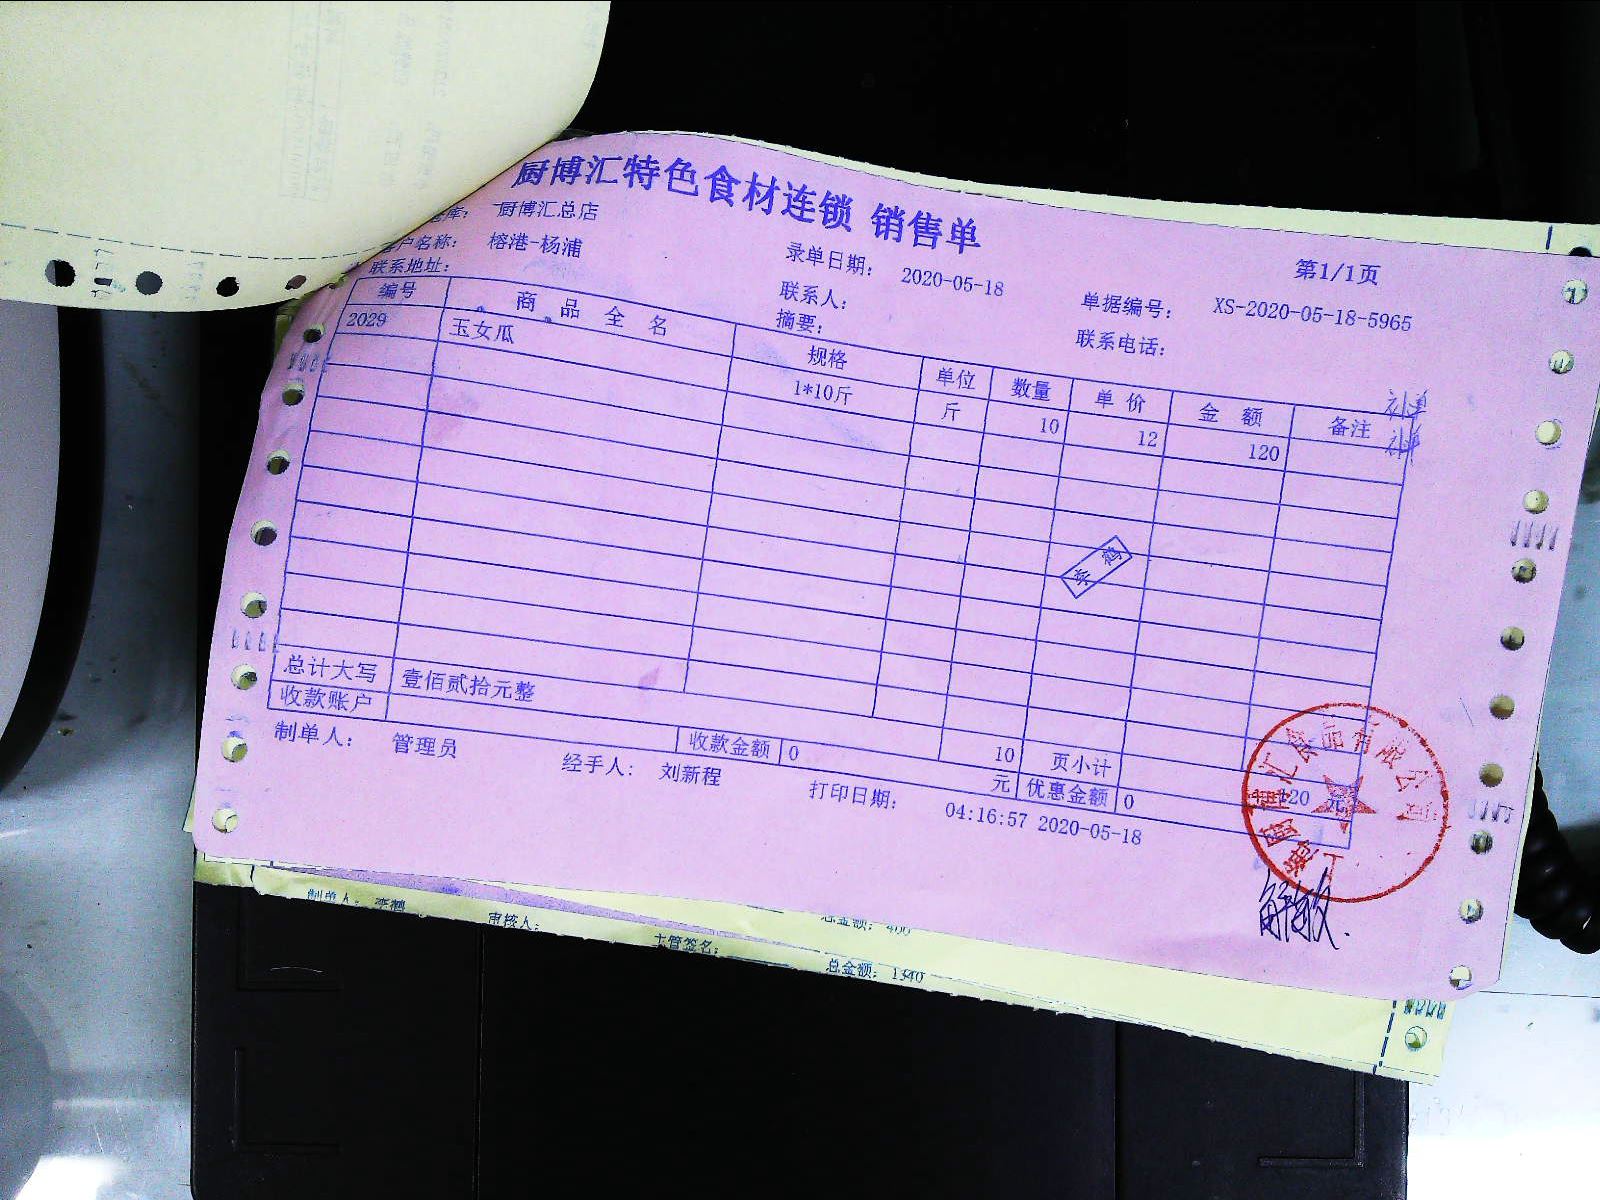 厨博汇特色食材连锁 销售单
库： 厨博汇总店
客户名称： 榕港-杨浦
录单日期： 2020-05-18
第1/1页
联系地址：
联系人：
单据编号： XS-2020-05-18-5965
摘要：
联系电话：
编号 商品全名 规格 单位 数量 单价 金额 备注
2029 玉女瓜 1*10斤 斤 10 12 120
补单
补单
李鹤
总计大写 壹佰贰拾元整 10 页小计 120 元
收款账户 收款金额 0 元 优惠金额 0
制单人： 管理员 经手人： 刘新程 打印日期： 04:16:57 2020-05-18
上海厨博汇食品有限公司
制单人：李鹤 审核人： 主管签名： 总金额：1340
总金额：400